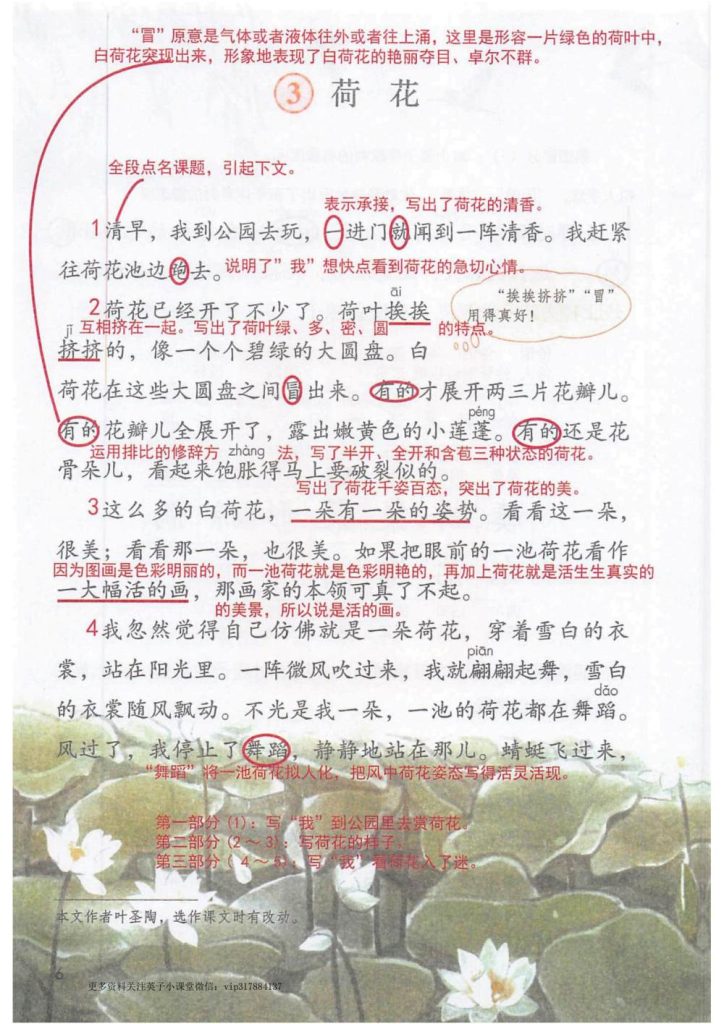 “冒”原意是气体或者液体往外或者往上涌，这里是形容一片绿色的荷叶中，
白荷花突现出来，形象地表现了白荷花的艳丽夺目、卓尔不群。
3 荷 花
全段点名课题，引起下文。
表示承接，写出了荷花的清香。
1清早，我到公园去玩，一进门就闻到一阵清香。我赶紧
往荷花池边跑去。
说明了“我”想快点看到荷花的急切心情。
āi
2荷花已经开了不少了。荷叶挨挨
“挨挨挤挤”“冒”
用得真好！
jǐ
互相挤在一起。写出了荷叶绿、多、密、圆 的特点。
挤挤的，像一个个碧绿的大圆盘。白
荷花在这些大圆盘之间冒出来。有的才展开两三片花瓣儿。
péng
有的花瓣儿全展开了，露出嫩黄色的小莲蓬。有的还是花
运用排比的修辞方 zhàng 法，写了半开、全开和含苞三种状态的荷花。
骨朵儿，看起来饱胀得马上要破裂似的。
写出了荷花千姿百态，突出了荷花的美。
3这么多的白荷花，一朵有一朵的姿势。看看这一朵，
很美；看看那一朵，也很美。如果把眼前的一池荷花看作
因为图画是色彩明丽的，而一池荷花就是色彩明艳的，再加上荷花就是活生生真实的
一大幅活的画，那画家的本领可真了不起。
的美景，所以说是活的画。
4我忽然觉得自己仿佛就是一朵荷花，穿着雪白的衣
piān
裳，站在阳光里。一阵微风吹过来，我就翩翩起舞，雪白
dǎo
的衣裳随风飘动。不光是我一朵，一池的荷花都在舞蹈。
风过了，我停止了舞蹈，静静地站在那儿。蜻蜓飞过来，
“舞蹈”将一池荷花拟人化，把风中荷花姿态写得活灵活现。
第一部分(1)：写“我”到公园里去赏荷花。
第二部分(2～3)：写荷花的样子。
第三部分( 4～5)：写“我”看荷花入了迷。
本文作者叶圣陶，选作课文时有改动。
6
更多资料关注英子小课堂微信：vip317884137